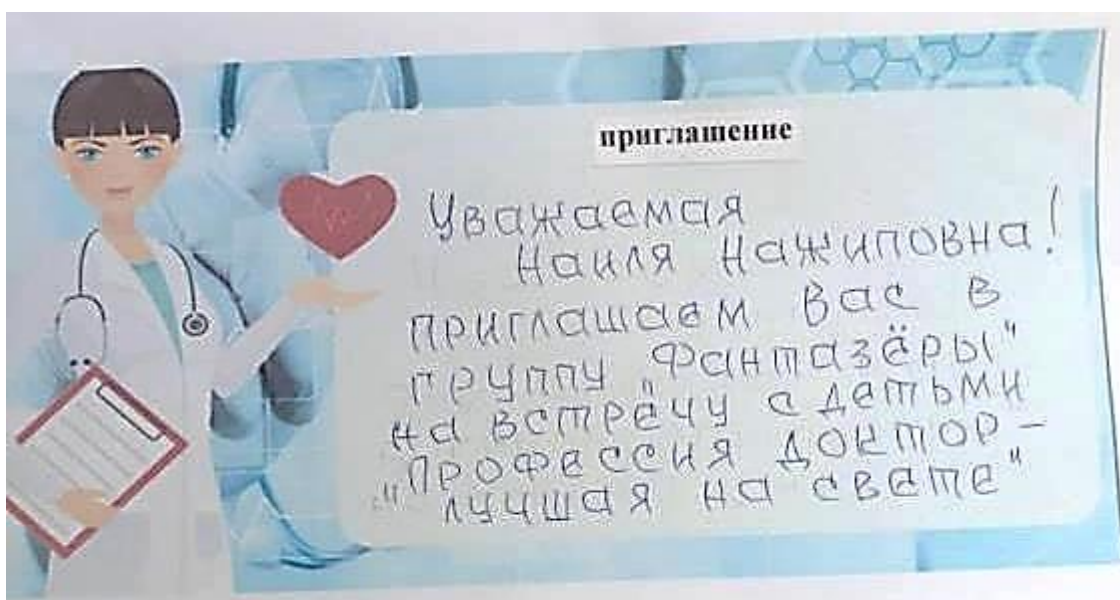 приглашение
Уважаемая
Наиля Нажиповна!
приглашаем Вас в
группу „Фантазёры"
на встречу с детьми
„Профессия доктор –
лучшая на свете"